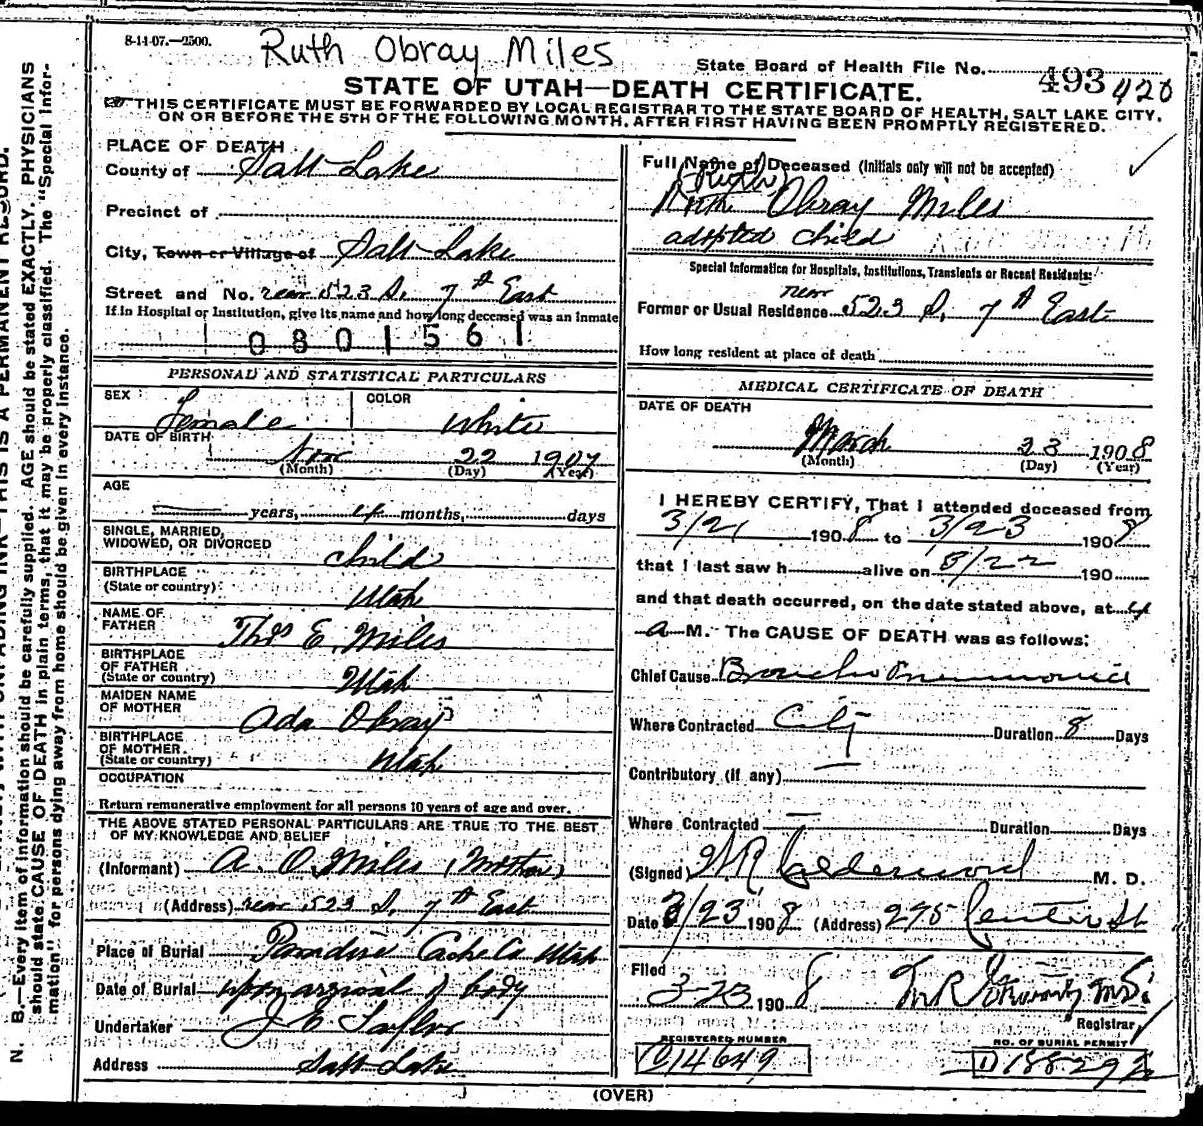 8-14-07.—2500.
Ruth Obray Miles
State Board of Health File No. 493 420
STATE OF UTAH—DEATH CERTIFICATE.
THIS CERTIFICATE MUST BE FORWARDED BY LOCAL REGISTRAR TO THE STATE BOARD OF HEALTH, SALT LAKE CITY,
ON OR BEFORE THE 5TH OF THE FOLLOWING MONTH, AFTER FIRST HAVING BEEN PROMPTLY REGISTERED.
PLACE OF DEATH
County of Salt Lake
Precinct of
City, Town or Village of Salt Lake
Street and No. rear 523 S. 7th East
If in Hospital or Institution, give its name and how long deceased was an inmate
0801561
PERSONAL AND STATISTICAL PARTICULARS
SEX Female
COLOR White
DATE OF BIRTH
Nov 22 1907
(Month) (Day) (Year)
AGE
years, 4 months, days
SINGLE, MARRIED,
WIDOWED, OR DIVORCED child
BIRTHPLACE
(State or country) Utah
NAME OF
FATHER Thos E. Miles
BIRTHPLACE
OF FATHER
(State or country) Utah
MAIDEN NAME
OF MOTHER Ada Obray
BIRTHPLACE
OF MOTHER
(State or country) Utah
OCCUPATION
Return remunerative employment for all persons 10 years of age and over.
THE ABOVE STATED PERSONAL PARTICULARS ARE TRUE TO THE BEST
OF MY KNOWLEDGE AND BELIEF
(Informant) A. O. Miles (Mother)
(Address) rear 523 S. 7th East
Place of Burial Paradise Cache Co Utah
Date of Burial upon arrival of body
Undertaker J E Taylor
Address Salt Lake
Full Name of Deceased (Initials only will not be accepted)
(Ruth)
Ruth Obray Miles
adopted child
Special Information for Hospitals, Institutions, Transients or Recent Residents:
Former or Usual Residence rear 523 S. 7th East
How long resident at place of death
MEDICAL CERTIFICATE OF DEATH
DATE OF DEATH
March 23 1908
(Month) (Day) (Year)
I HEREBY CERTIFY, That I attended deceased from
3/21 1908 to 3/23 1908
that I last saw h alive on 3/22 190
and that death occurred, on the date stated above, at 4
a M. The CAUSE OF DEATH was as follows:
Chief Cause Broncho Pneumonia
Where Contracted City Duration 8 Days
Contributory (if any)
Where Contracted Duration Days
(Signed) W R Calderwood M. D.
Date 3/23 1908 (Address) 275 Center St
Filed
3-23 1908
Registrar
REGISTERED NUMBER
NO. OF BURIAL PERMIT
(OVER)
N. B.—Every item of information should be carefully supplied. AGE should be stated EXACTLY. PHYSICIANS
should state CAUSE OF DEATH in plain terms, that it may be properly classified. The "Special Infor-
mation" for persons dying away from home should be given in every instance.